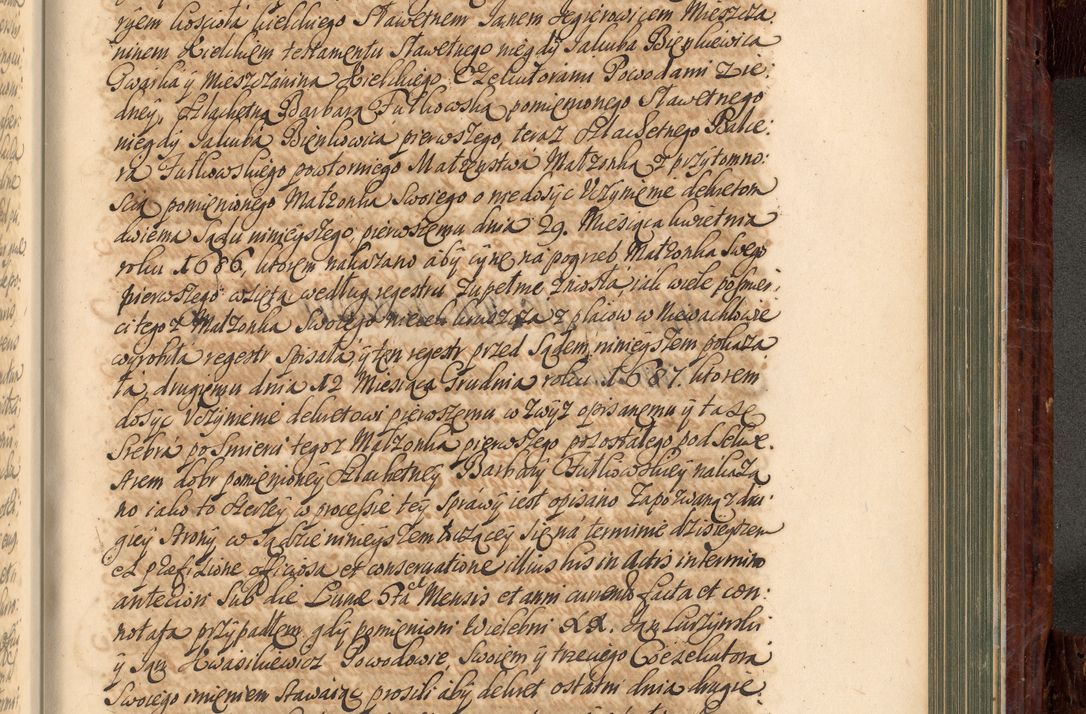 ryem kościoła kieleckiego Sławetnem Janem Jegierowicem Mieszcza
ninem Kielckiem testamentu Sławetnego niegdy Jakuba Bienkiewica
Gwarka y Mieszczanina Kielckiego Exekutorami Powodami z ie:
dney, Szlachetną Barbarą Jutkowską pomienionego Sławetnego
niegdy Jakuba Bienkowica pierwszego, teraz Szlachetnego
ra Jutkowskiego powtornego Małzenstwa Małzonką z przytomno:
scią pomienionego Małzonka Swoiego o niedosyc Uczynienie dekretom
dwiema Sądu ninieyszego, pierwszemu dnia 29. Miesiąca kwietnia
roku 1686, ktorem nakazano aby cyne na pogrzeb Małzonka Swego
pierwszego wziętą według regestru zupełnie zniosła, iak wiele po smier:
ci tego z Małzonka Swoiego kruszcza z placow w Niewachlowie
wyrobiła regestr spisała y ten regestr przed Sądem ninieyszem pokaza
ła, drugiemu dnia 12 Miesiąca Grudnia roku 1687. ktorem
dosyc Uczynienie dekretowi pierwszemu w zwyz opisanemu y taxę
Srebra po smierci tegoz Małzonka pierwszego pozostałego pod Sekwe:
strem dobr pomienioney Szlachetney Barbary Jutkowskiey nakaza
no iako to szerzey w processie tey sprawy iest opisano Zapozwaną z dru:
giey strony w Sądzie ninieyszem toczącey się na terminie dzisieyszem
ex prefixione officiosa et conservatione illius his in Actis in termino
anteriori Sub die Lunæ 5ta Mensis et anni currentis facta et con:
notata przypadłem, gdy pomienioni Wielebni XX. Jan Luszynski
y Jan Kwasikiewicz Powodowie, Swoiem y trzeciego Coexekutora
Swoiego imieniem stawaiąc prosili aby dekret ostatni dnia drugie: